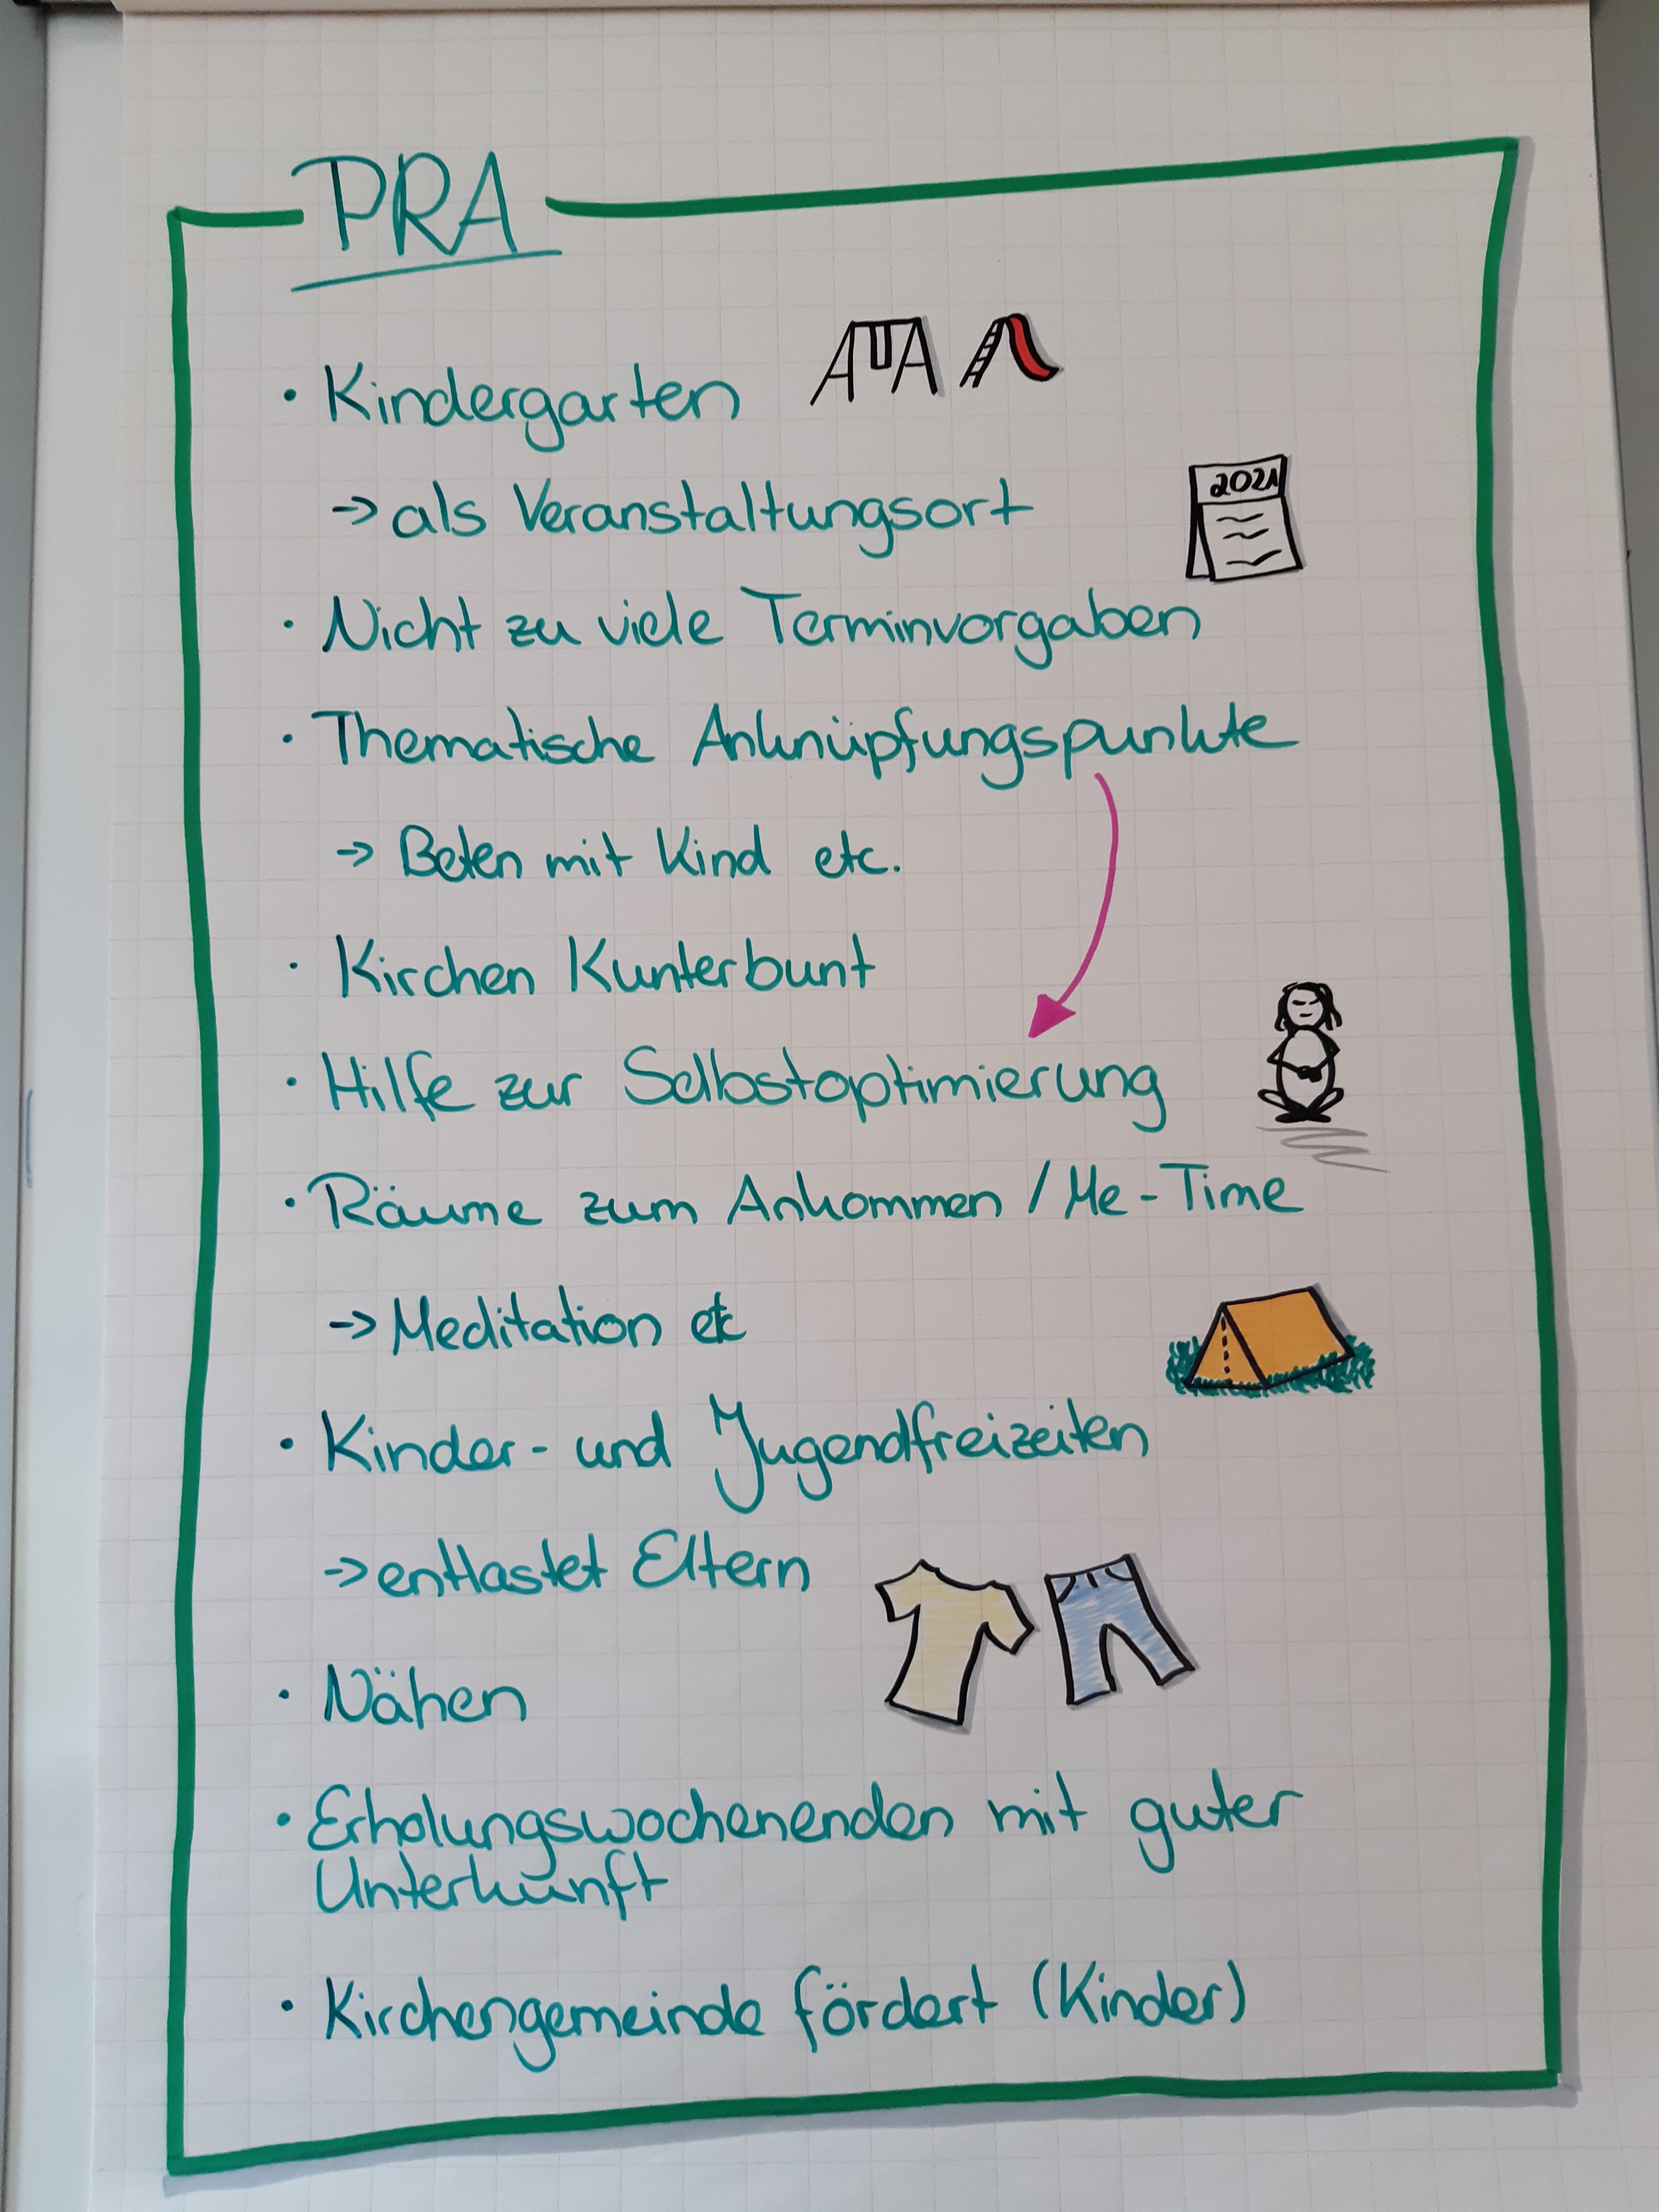 PRA
• Kindergarten
→ als Veranstaltungsort
2021
• Nicht zu viele Terminvorgaben
• Thematische Anknüpfungspunkte
→ Beten mit Kind etc.
• Kirchen Kunterbunt
• Hilfe zur Selbstoptimierung
• Räume zum Ankommen / Me-Time
→ Meditation etc
• Kinder- und Jugendfreizeiten
→ entlastet Eltern
• Nähen
• Erholungswochenenden mit guter
Unterkunft
• Kirchengemeinde fördert (Kinder)